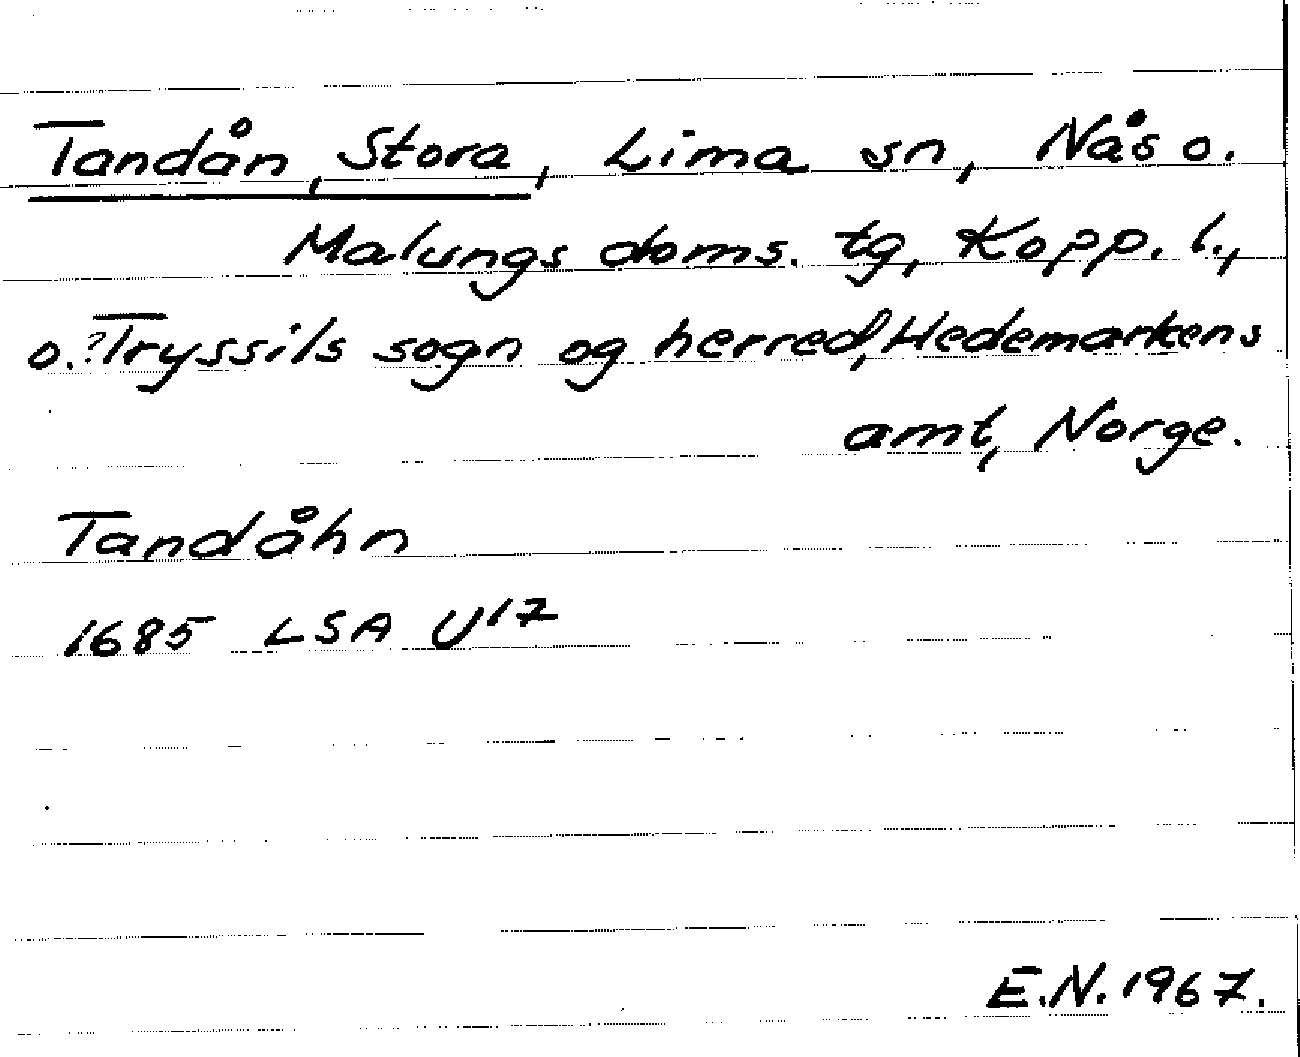 Tandån, Stora, Lima sn, Nås o.
Malungs doms. tg, Kopp. l.,
o. ?Tryssils sogn og herred, Hedemarkens
amt, Norge.
Tandåhn
1685 LSA U17
E.N. 1967.